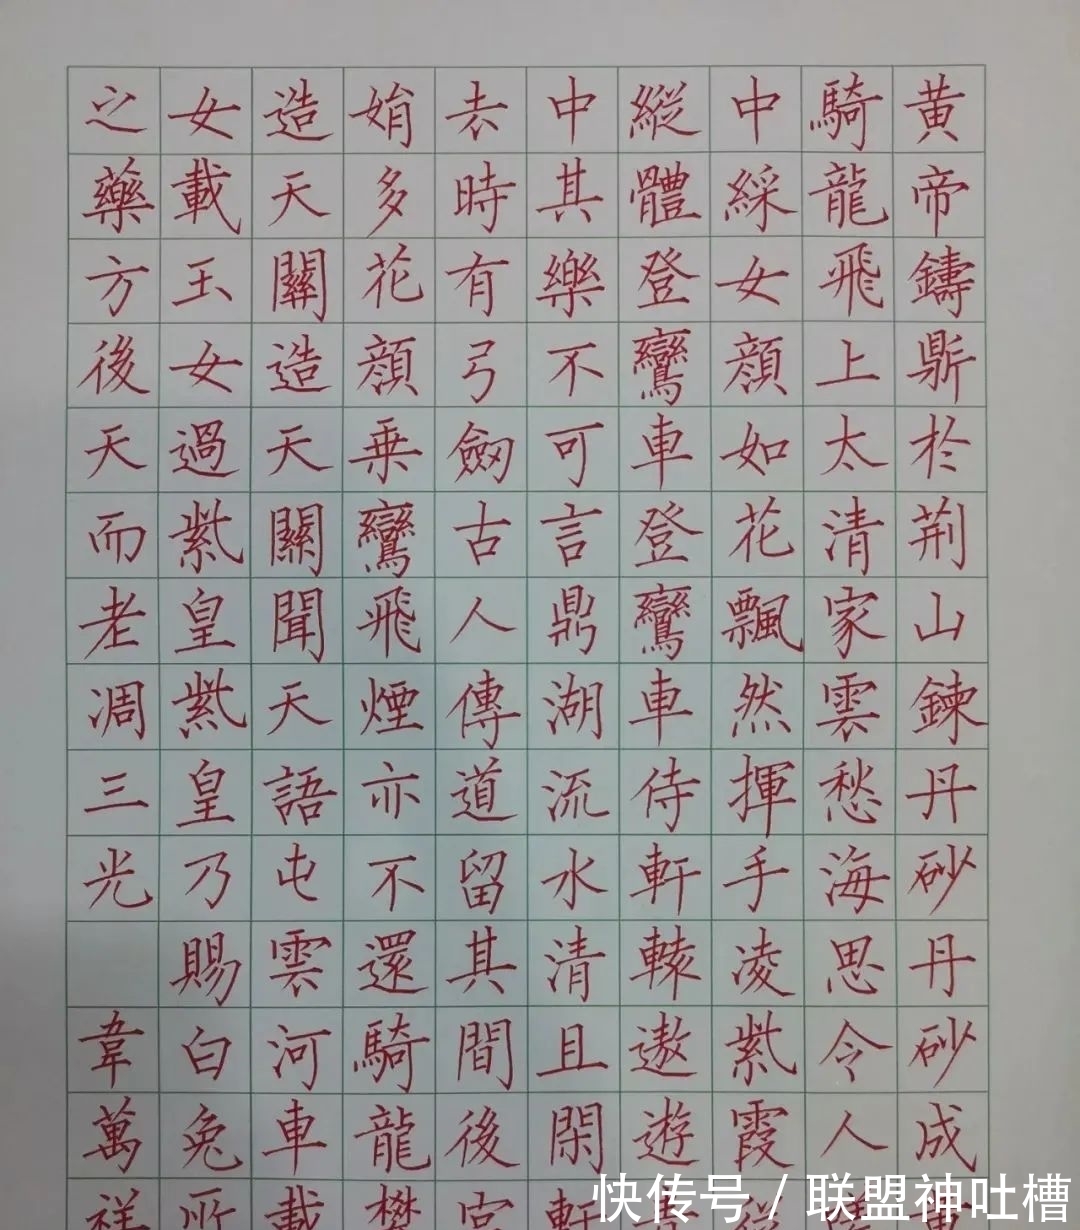 黄帝鑄鼎於荆山鍊丹砂丹砂成
騎龍飛上太清家雲愁海思令人
中綵女顔如花飄然揮手凌紫霞從
縱體登鸞車登鸞車侍軒轅遨遊
中其樂不可言鼎湖流水清且閑軒
去時有弓劔古人傳道留其間後宮
娟多花顔乗鸞飛煙亦不還騎龍攀
造天關造天關聞天語屯雲河車載
女載玉女過紫皇紫皇乃賜白兔所
之藥方後天而老凋三光 韋萬祥
快传号 / 联盟神吐槽